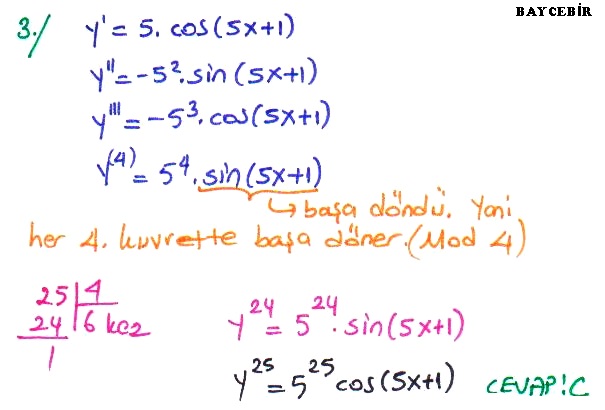 BAYCEBİR
3./ y' = 5. cos(5x+1)
y'' = -5². sin (5x+1)
y''' = -5³. cos(5x+1)
y⁽⁴⁾ = 5⁴. sin(5x+1)
↳ başa döndü. Yani
her 4. kuvvette başa döner. (Mod 4)
25 | 4
24 | 6 kez
1
y²⁴ = 5²⁴. sin(5x+1)
y²⁵ = 5²⁵ cos(5x+1) CEVAP!C